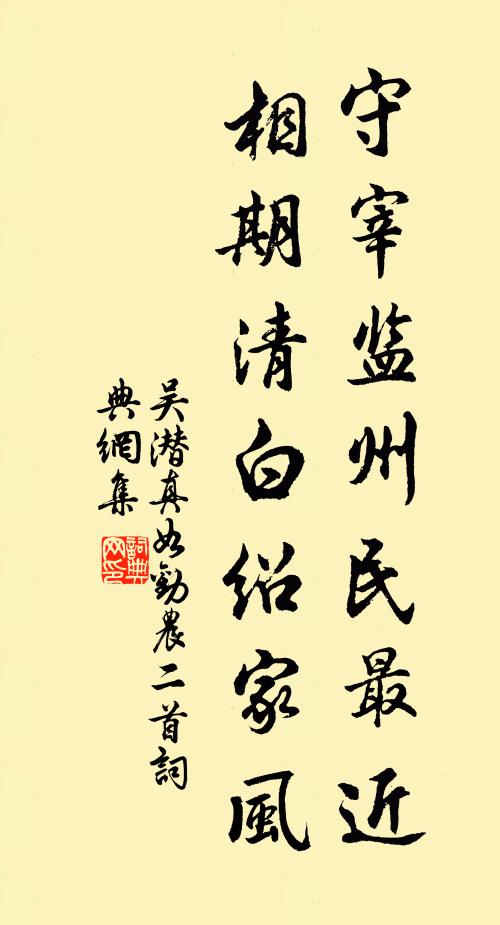 守宰监州民最近
相期清白绍家風
吴潜真如勸農二首詞
典網集
詞典网印